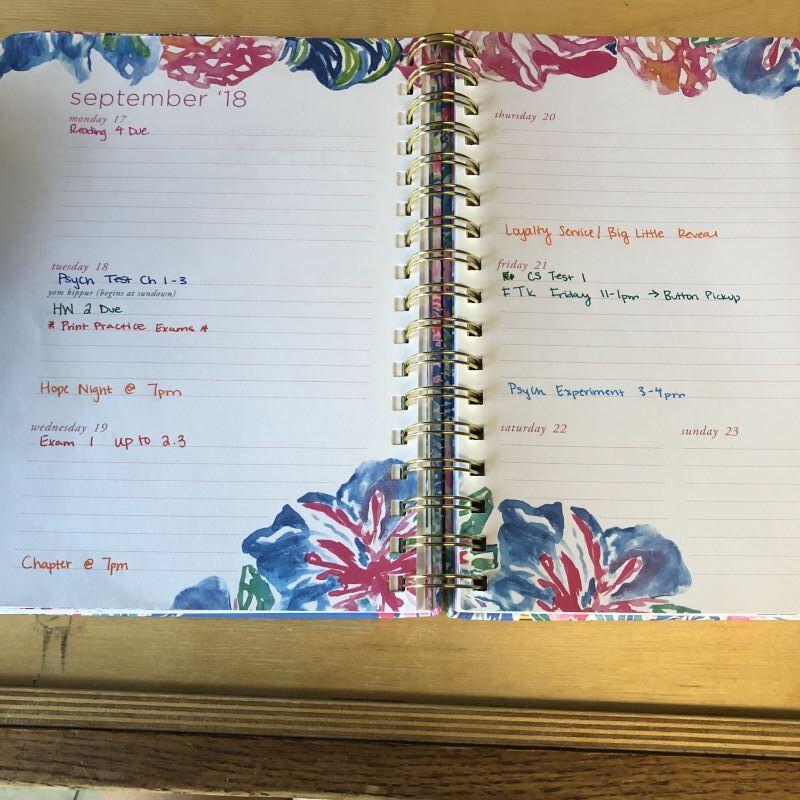 september '18
monday 17
Reading 4 Due
tuesday 18
Psych Test Ch 1-3
yom kippur (begins at sundown)
HW 2 Due
* Print Practice Exams *
Hope Night @ 7pm
wednesday 19
Exam 1 up to 2.3
Chapter @ 7pm
thursday 20
Loyalty Service / Big Little Reveal
friday 21
CS Test 1
FTK Friday 11-1pm → Button Pickup
Psych Experiment 3-4pm
saturday 22
sunday 23